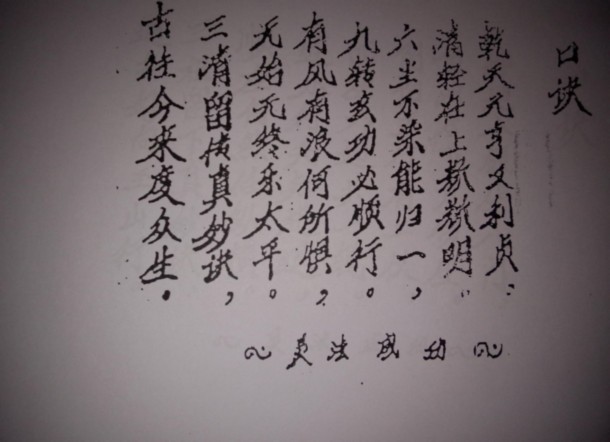 口诀
乾天元亨又利贞：
清轻在上数数明。
六尘不染能归一，
九转玄功必顺行。
有风有浪何所惧，
无始无终乐太平。
三清留传真妙诀，
古往今来度众生。
功成法灵